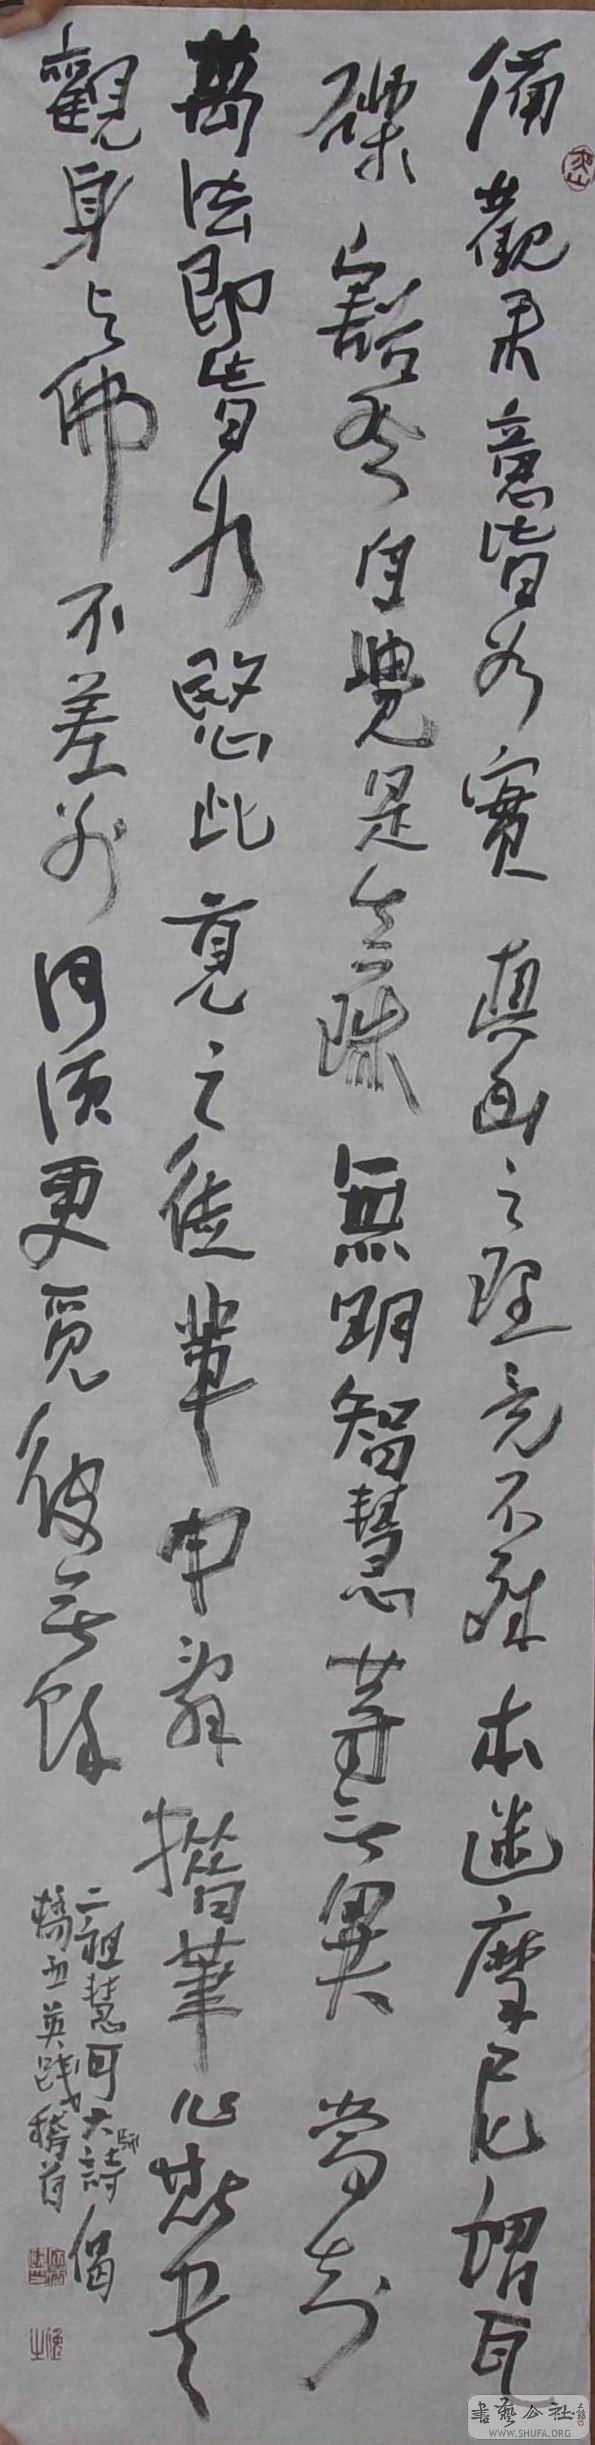 備觀來意皆如實真幽之理竟不殊本迷摩尼謂瓦
礫豁然自覺是真珠無明智慧等無異當知
萬法即皆如愍此二見之徒輩申辭措筆作斯書
觀身與佛不差別何須更覓彼無餘
二祖慧可大師詩偈
英 稽首
書藝公社
WWW.SHUFA.ORG